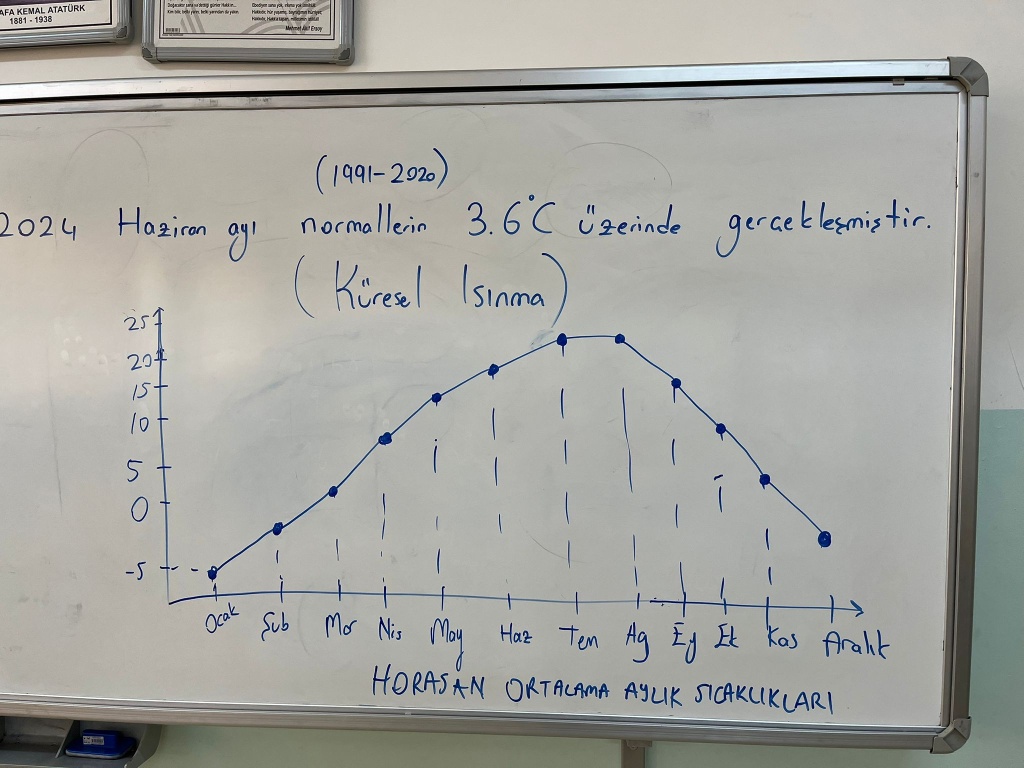 AFA KEMAL ATATÜRK
1881 - 1938
Mehmet Akif Ersoy
(1991-2020)
2024 Haziran ayı normallerin 3.6°C üzerinde gerçekleşmiştir.
(Küresel Isınma)
25
20
15
10
5
0
-5
Ocak Şub Mar Nis May Haz Tem Ağ Ey Ek Kas Aralık
HORASAN ORTALAMA AYLIK SICAKLIKLARI